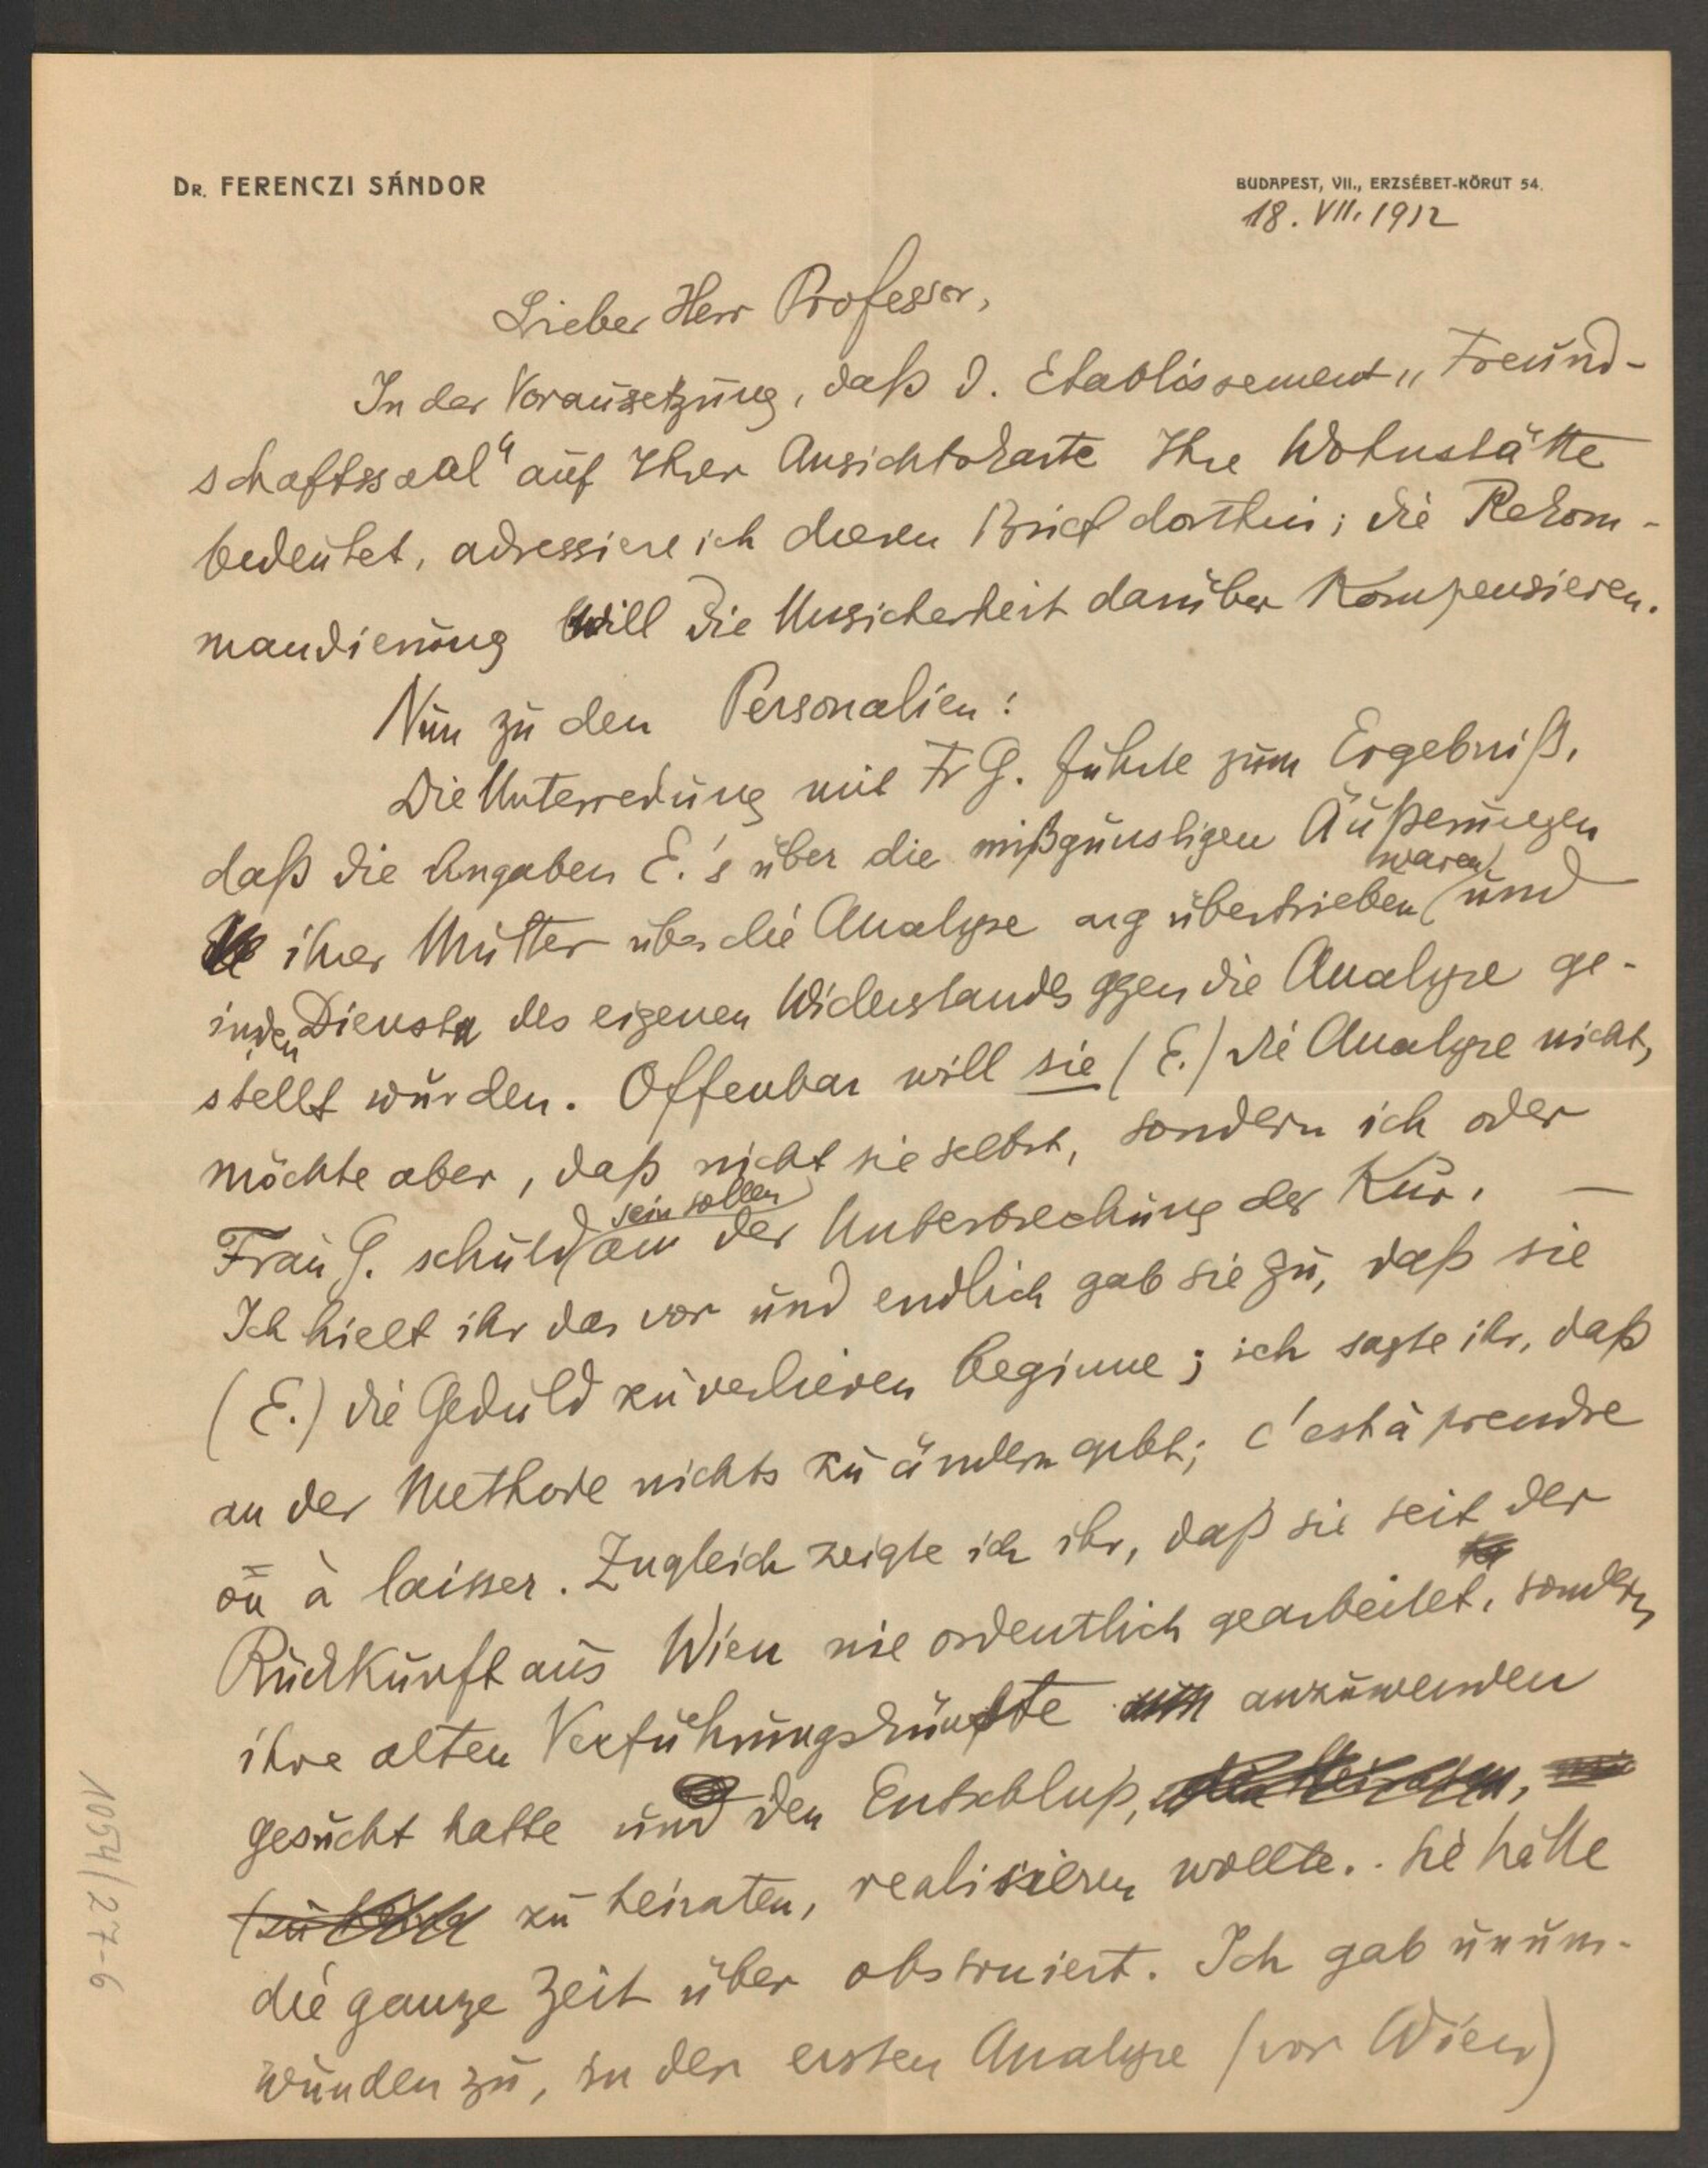 DR. FERENCZI SÁNDOR
BUDAPEST, VII., ERZSÉBET-KÖRUT 54.
18. VII. 1912
Lieber Herr Professor,
In der Voraussetzung, daß d. Etablissement „Freund-
schaftssaal“ auf Ihrer Ansichtskarte Ihre Wohnstätte
bedeutet, adressiere ich diesen Brief dorthin; die Rekom-
mandierung will die Unsicherheit darüber kompensieren.
Nun zu den Personalien:
Die Unterredung mit Fr G. führte zum Ergebniß,
daß die Angaben E.'s über die mißgünstigen Äußerungen
ihrer Mutter über die Analyse arg übertrieben waren und
in den Dienst des eigenen Widerstandes gegen die Analyse ge-
stellt wurden. Offenbar will sie (E.) die Analyse nicht,
möchte aber, daß nicht sie selbst, sondern ich oder
Frau G. schuld sein sollen an der Unterbrechung der Kur. —
Ich hielt ihr das vor und endlich gab sie zu, daß sie
(E.) die Geduld zu verlieren beginne; ich sagte ihr, daß
an der Methode nichts zu ändern gebt; c'est à prendre
ou à laisser. Zugleich zeigte ich ihr, daß sie seit der
Rückkunft aus Wien nie ordentlich gearbeitet, sondern
ihre alten Verführungskünste anzuwenden
gesucht hatte und den Entschluß,
zu heiraten, realisieren wollte. Sie hätte
die ganze Zeit über obstruiert. Ich gab unum-
wunden zu, in der ersten Analyse (vor Wien)
10541/27-6